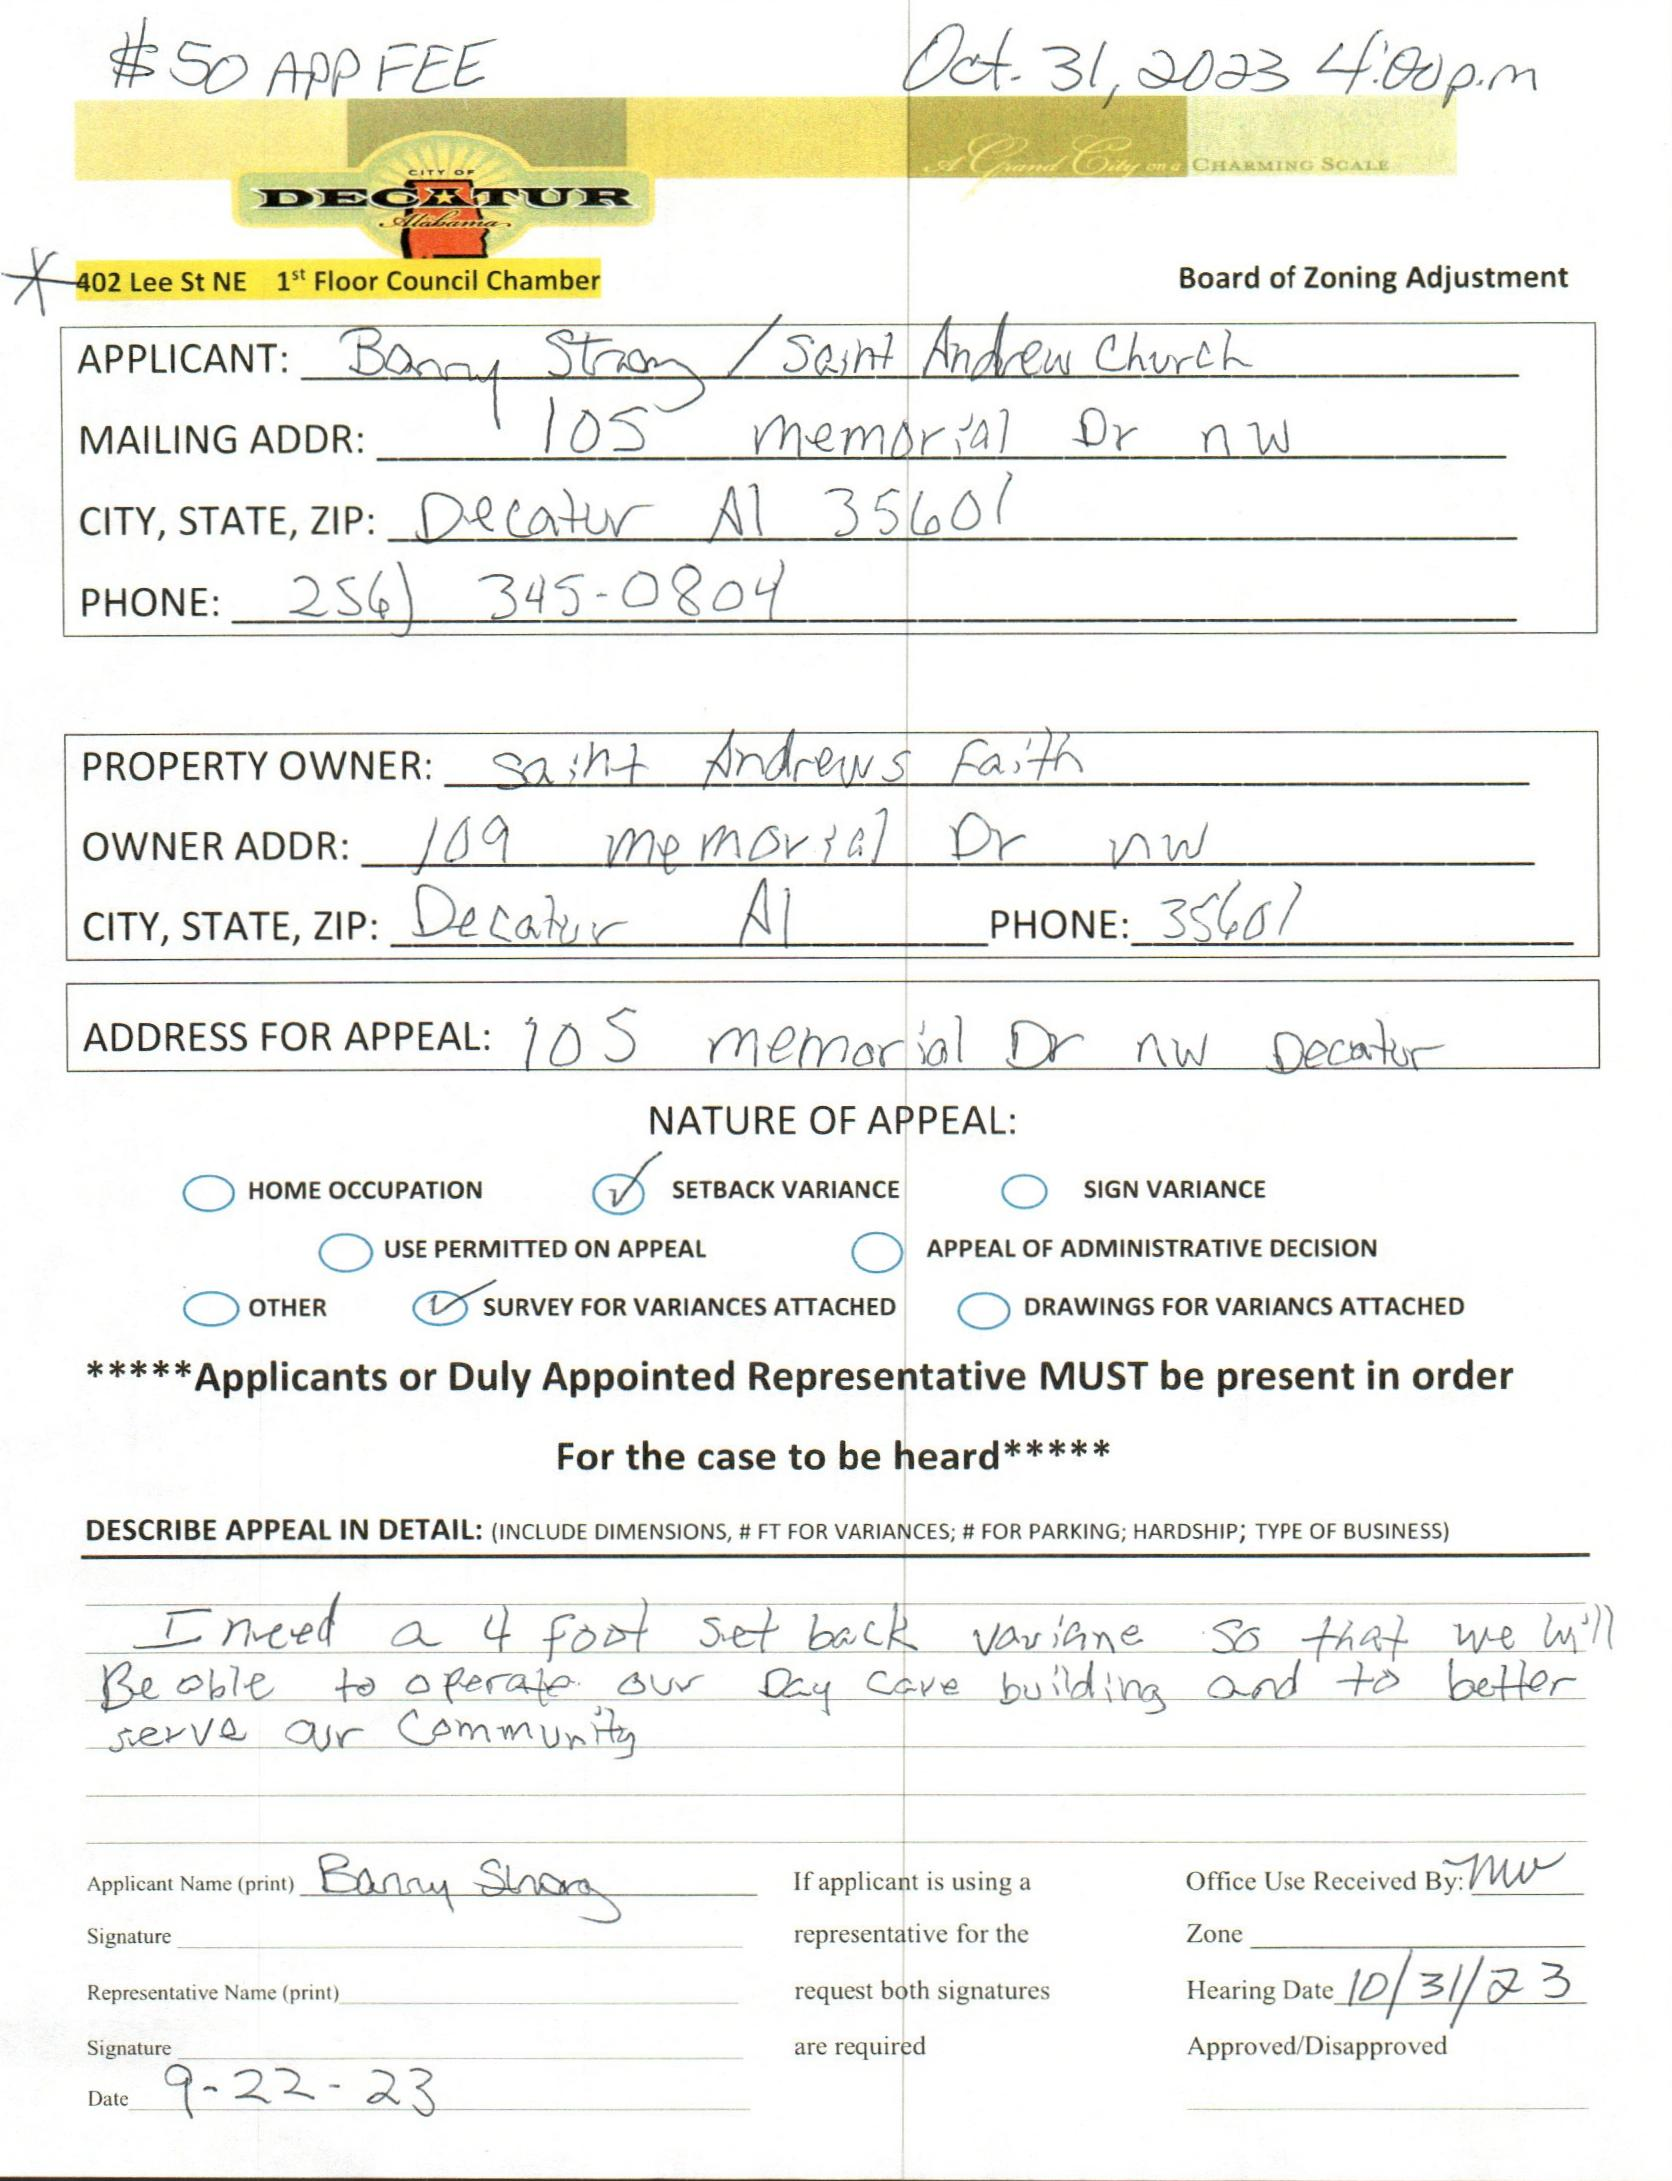 $50 APP FEE Oct. 31, 2023 4:00p.m
A Grand City on a CHARMING SCALE
CITY OF
DECATUR
Alabama
402 Lee St NE 1st Floor Council Chamber Board of Zoning Adjustment
APPLICANT: Barry Strong / Saint Andrew Church
MAILING ADDR: 105 memorial Dr nw
CITY, STATE, ZIP: Decatur Al 35601
PHONE: 256) 345-0804
PROPERTY OWNER: Saint Andrews Faith
OWNER ADDR: 109 memorial Dr nw
CITY, STATE, ZIP: Decatur Al PHONE: 35601
ADDRESS FOR APPEAL: 105 memorial Dr nw Decatur
NATURE OF APPEAL:
HOME OCCUPATION SETBACK VARIANCE SIGN VARIANCE
USE PERMITTED ON APPEAL APPEAL OF ADMINISTRATIVE DECISION
OTHER SURVEY FOR VARIANCES ATTACHED DRAWINGS FOR VARIANCS ATTACHED
*****Applicants or Duly Appointed Representative MUST be present in order
For the case to be heard*****
DESCRIBE APPEAL IN DETAIL: (INCLUDE DIMENSIONS, # FT FOR VARIANCES; # FOR PARKING; HARDSHIP; TYPE OF BUSINESS)
I need a 4 foot set back varianc so that we will
Be able to operate our Day Care building and to better
serve our Community
Applicant Name (print) Barry Strong If applicant is using a Office Use Received By: MW
Signature representative for the Zone
Representative Name (print) request both signatures Hearing Date 10/31/23
Signature are required Approved/Disapproved
Date 9-22-23